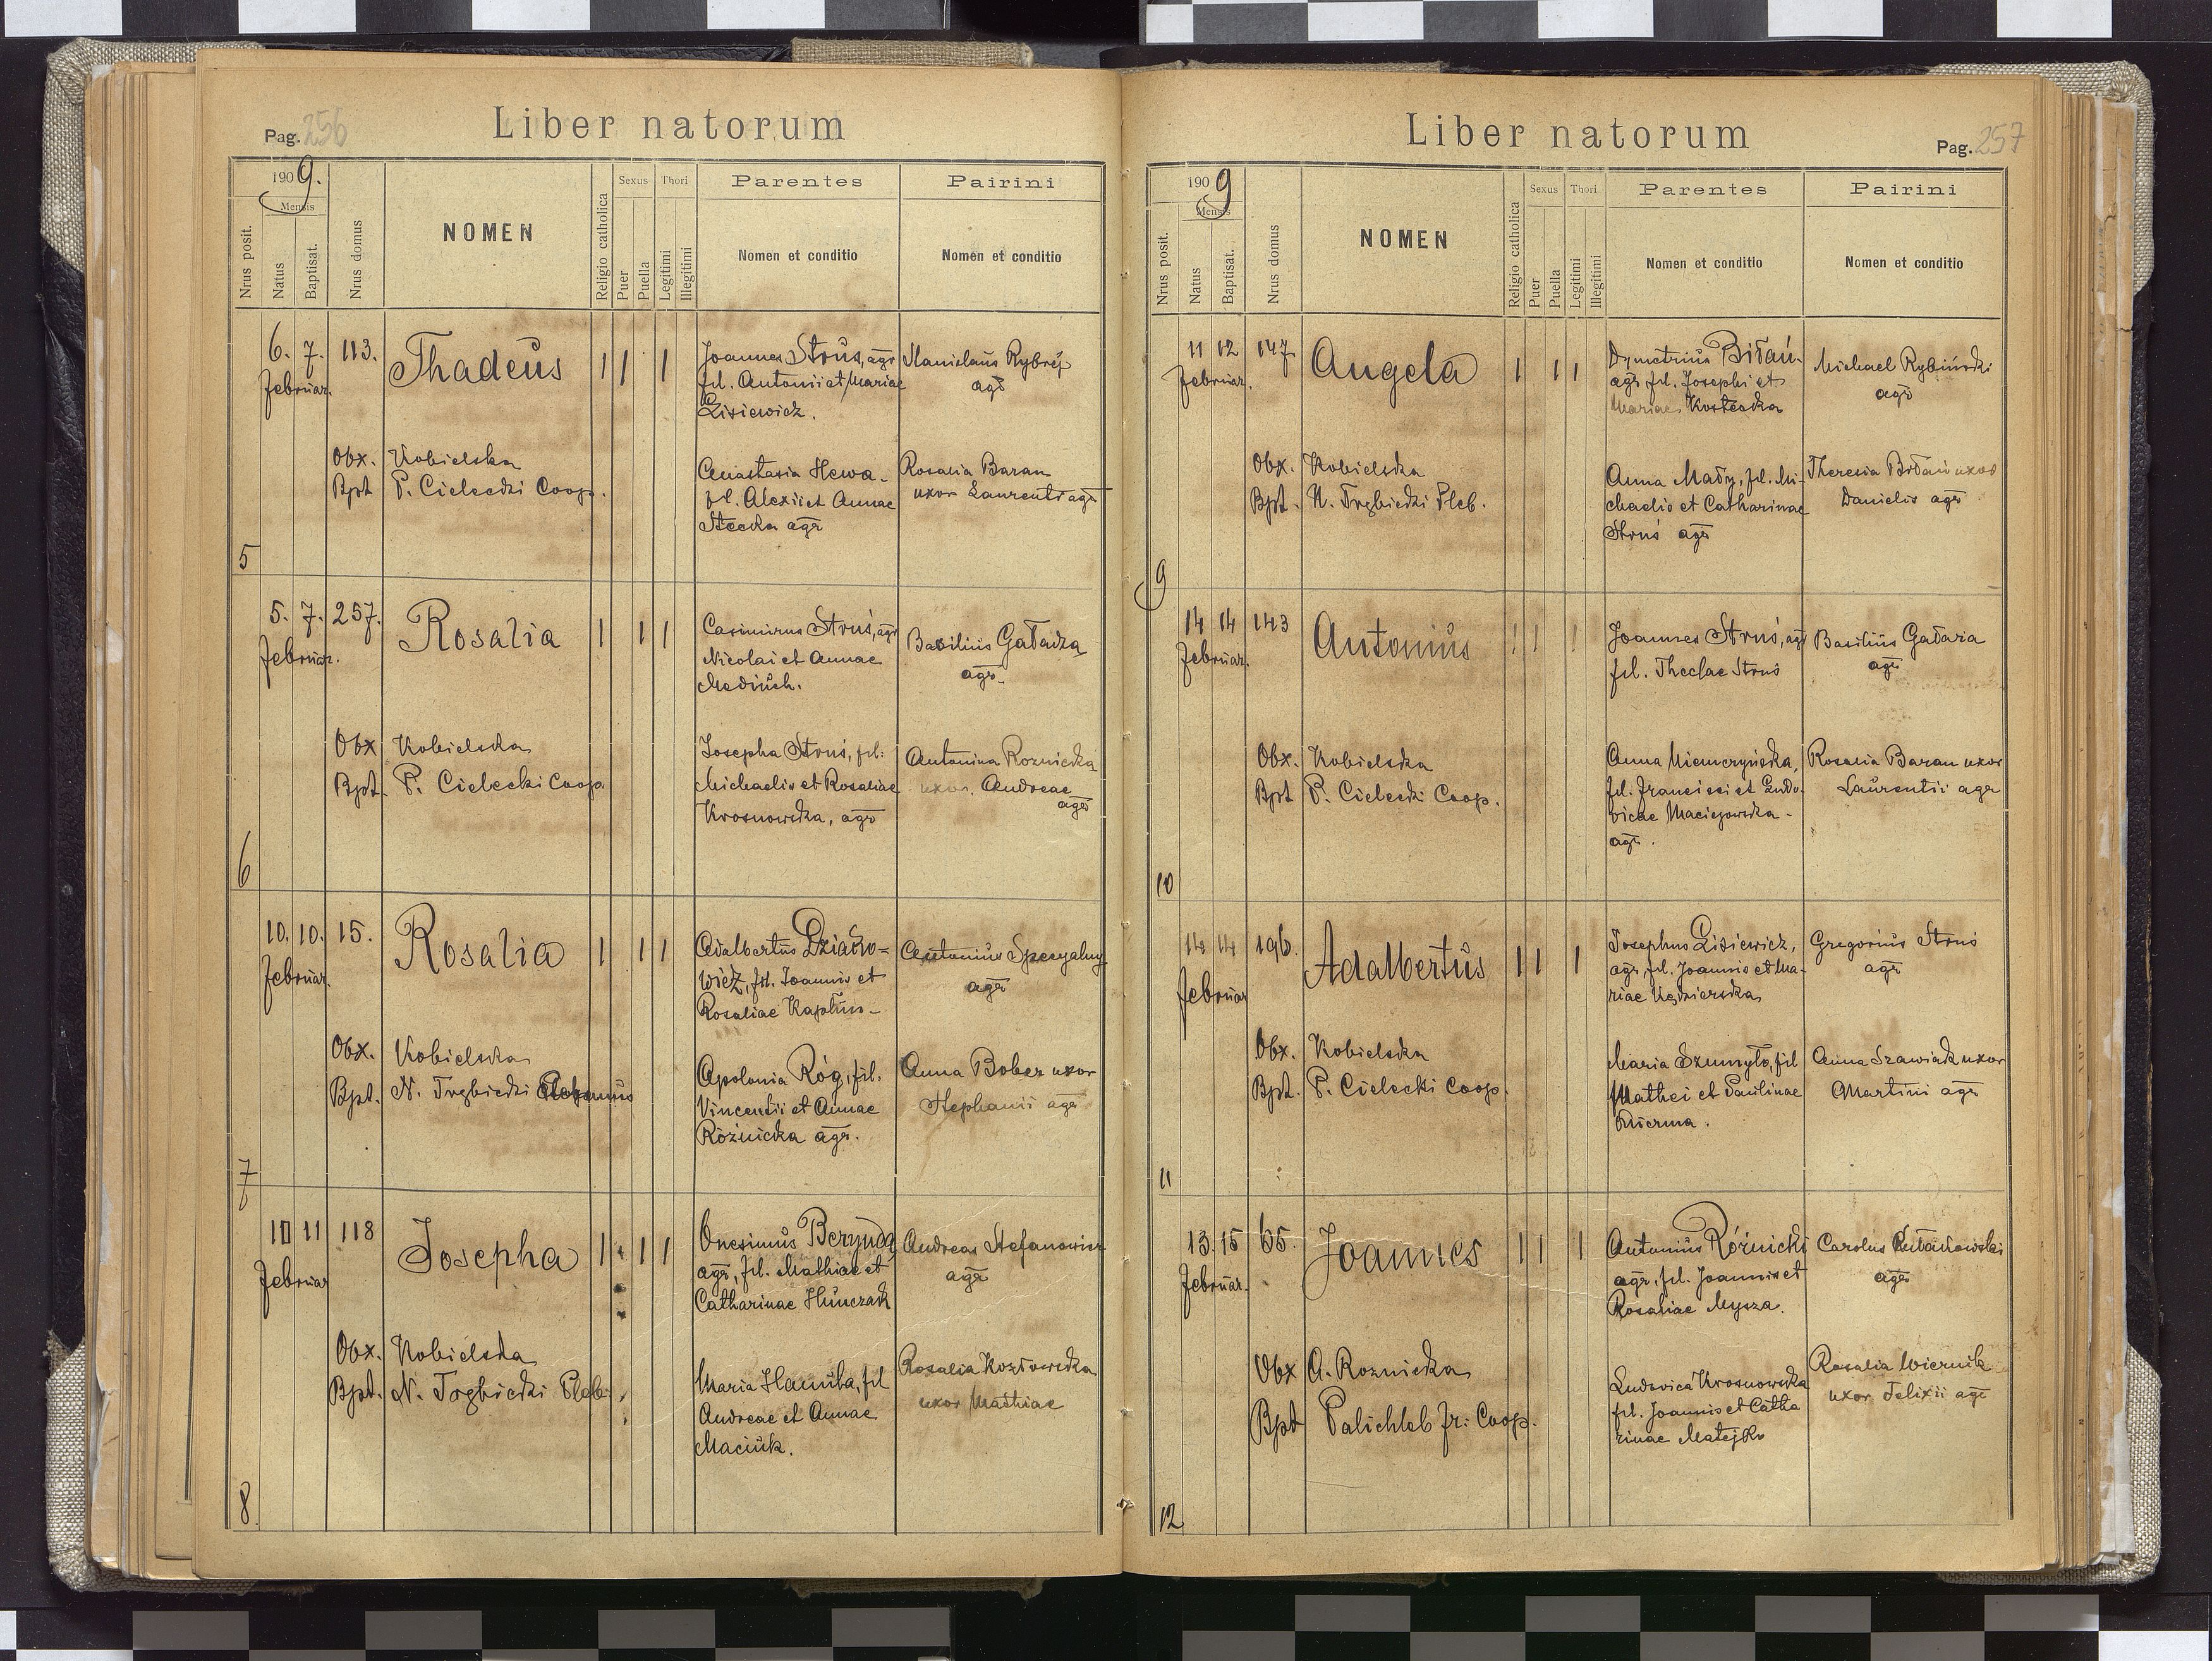 Pag. 256
Liber natorum
1909.
Mensis
Nrus posit.
Natus
Baptisat.
Nrus domus
NOMEN
Religio catholica
Sexus
Puer
Puella
Thori
Legitimi
Illegitimi
Parentes
Nomen et conditio
Pairini
Nomen et conditio
5
6. 7. 113.
Februar.
Thadeus
1 1 1
Joannes Struś, agr
fil. Antonii et Mariae
Lisiewicz.
Stanislaus
agr
Obx. Kobielska
Bpt P. Cielecki Coop.
Anastasia Hewa
fil. Alexii et Annae
Stecka agr
Rosalia Baran
uxor Laurentii agr
6
5. 7. 257.
Februar.
Rosalia
1 1 1
Casimirus Struś, agr
Nicolai et Annae
Mediuch.
Basilius Gaładza
agr.
Obx Kobielska
Bpt. P. Cielecki Coop
Josepha Struś, fil:
Michaelis et Rosaliae
Krosnowska, agr
Antonina Roznicka
uxor. Andreae
agr
7
10. 10. 15.
Februar.
Rosalia
1 1 1
Adalbertus
fil. Joannis et
Rosaliae Kaptun
Antonius Specyalny
agr
Obx. Kobielska
Bpt. N. Trzbicki Plebanus
Apolonia Róg, fil.
Vincentii et Annae
Róźnicka agr.
Anna Bober uxor
Stephanii agr
8.
10 11 118
Februar
Josepha
1 1 1
Onesimus Berynda
agr, fil. Mathiae et
Catharinae Hunczak
Andreas Stefanowicz
agr
Obx. Kobielska
Bpt. N. Trzbicki Pleb.
Maria Hanuła, fil
Andreae et Annae
Maciuk.
Rosalia Kozłowska
uxor Mathiae
Liber natorum
Pag. 257
1909
Mensis
Nrus posit.
Natus
Baptisat.
Nrus domus
NOMEN
Religio catholica
Sexus
Puer
Puella
Thori
Legitimi
Illegitimi
Parentes
Nomen et conditio
Pairini
Nomen et conditio
9
11 12 147
Februar.
Angela
1 1 1
Dymetrius Biłań
agr fil. Josephi et
Mariae Kostecka
Michael Rybiński
agr
Obx. Kobielska
Bpt. N. Trzbicki Pleb.
Anna Mały, fil. Mi-
chaelis et Catharinae
Struś agr
Theresia Biłań uxor
Danielis agr
10
14 14 143
Februar.
Antonius
1 1 1
Joannes Struś, agr
fil. Theclae Struś
Basilius Gałaza
agr
Obx. Kobielska
Bpt P. Cielecki Coop.
Anna Niemczyńska,
fil. Francisci et Ludo-
vicae Maciejowska -
agr.
Rosalia Baran uxor
Laurentii agr
11
14 14 196
Februar
Adalbertus
1 1 1
Josephus Lisiewicz,
agr, fil. Joannis et Ma-
riae Kędzierska
Gregorius Struś
agr
Obx. Kobielska
Bpt. P. Cielecki Coop.
Maria Szumyło, fil
Mathei et Paulinae
Anna Szawiak uxor
Martini agr
12
13. 15 65.
Februar.
Joannes
1 1 1
Antonius Róźnicki
agr, fil. Joannis et
Rosaliae Mysza.
Carolus
agr
Obx A. Roznicka
Bpt Palichleb Fr: Coop.
Ludovica Krosnowska
fil. Joannis et Catha
rinae Matejko
Rosalia Wiernik
uxor Felixii agr